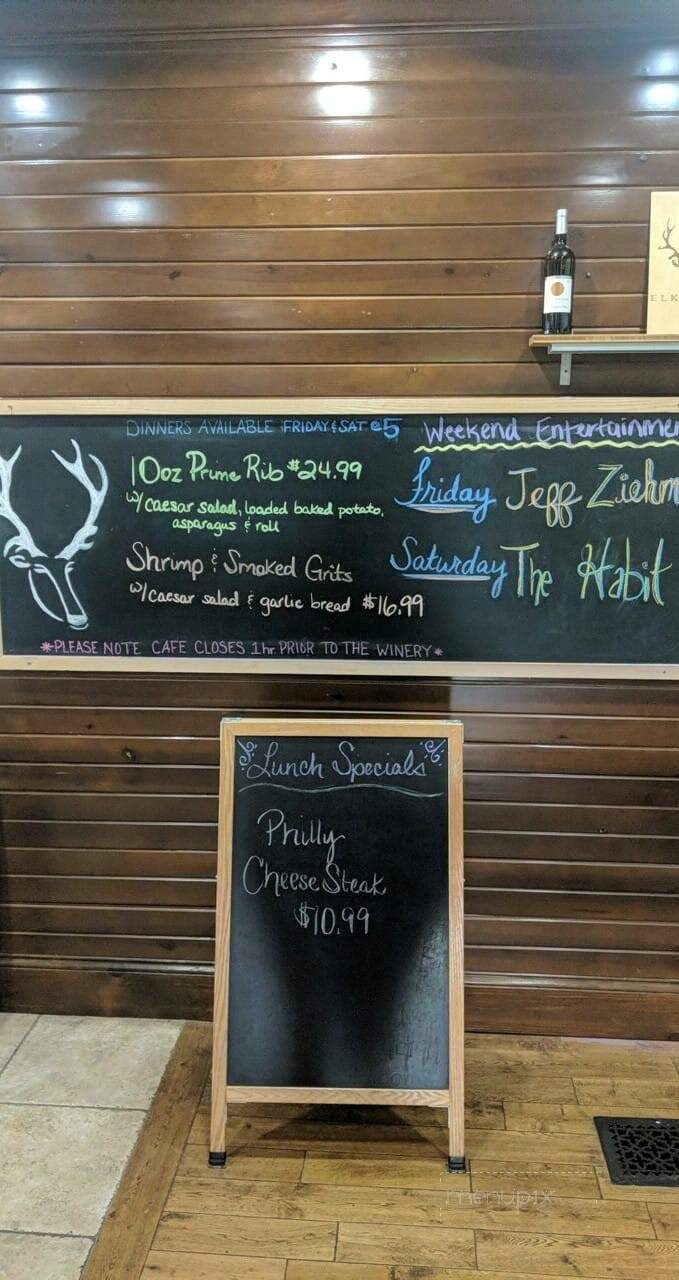 ELK
DINNERS AVAILABLE FRIDAY & SAT @5
10oz Prime Rib $24.99
w/ caesar salad, loaded baked potato,
asparagus & roll
Shrimp & Smoked Grits
w/ caesar salad & garlic bread $16.99
*PLEASE NOTE CAFE CLOSES 1hr. PRIOR TO THE WINERY*
Weekend Entertainme
Friday Jeff Ziehm
Saturday The Habit
Lunch Specials
Philly
Cheese Steak
$10.99
menupix